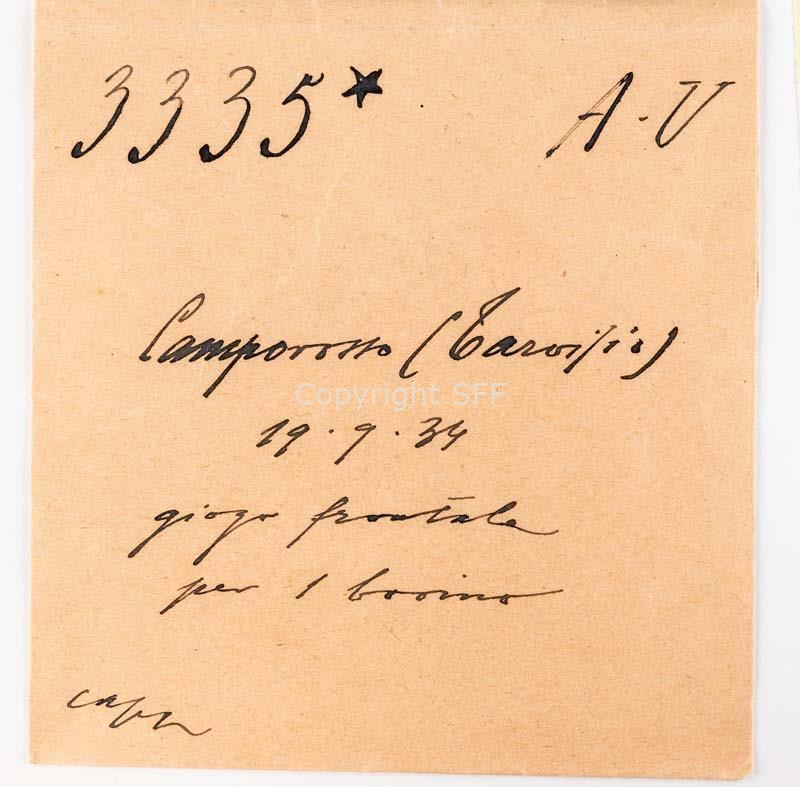 3335* A.V
Camporosso (Tarvisio)
Copyright SFF
19.9.34
giogo frontale
per 1 bovino